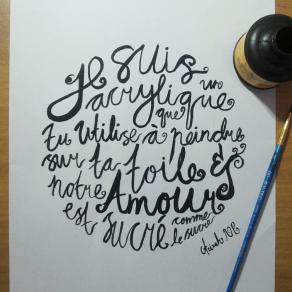 Je suis
un
acrylique
que
tu utilise à peindre
sur ta toile &
notre
Amour
est sucré comme
le sucre